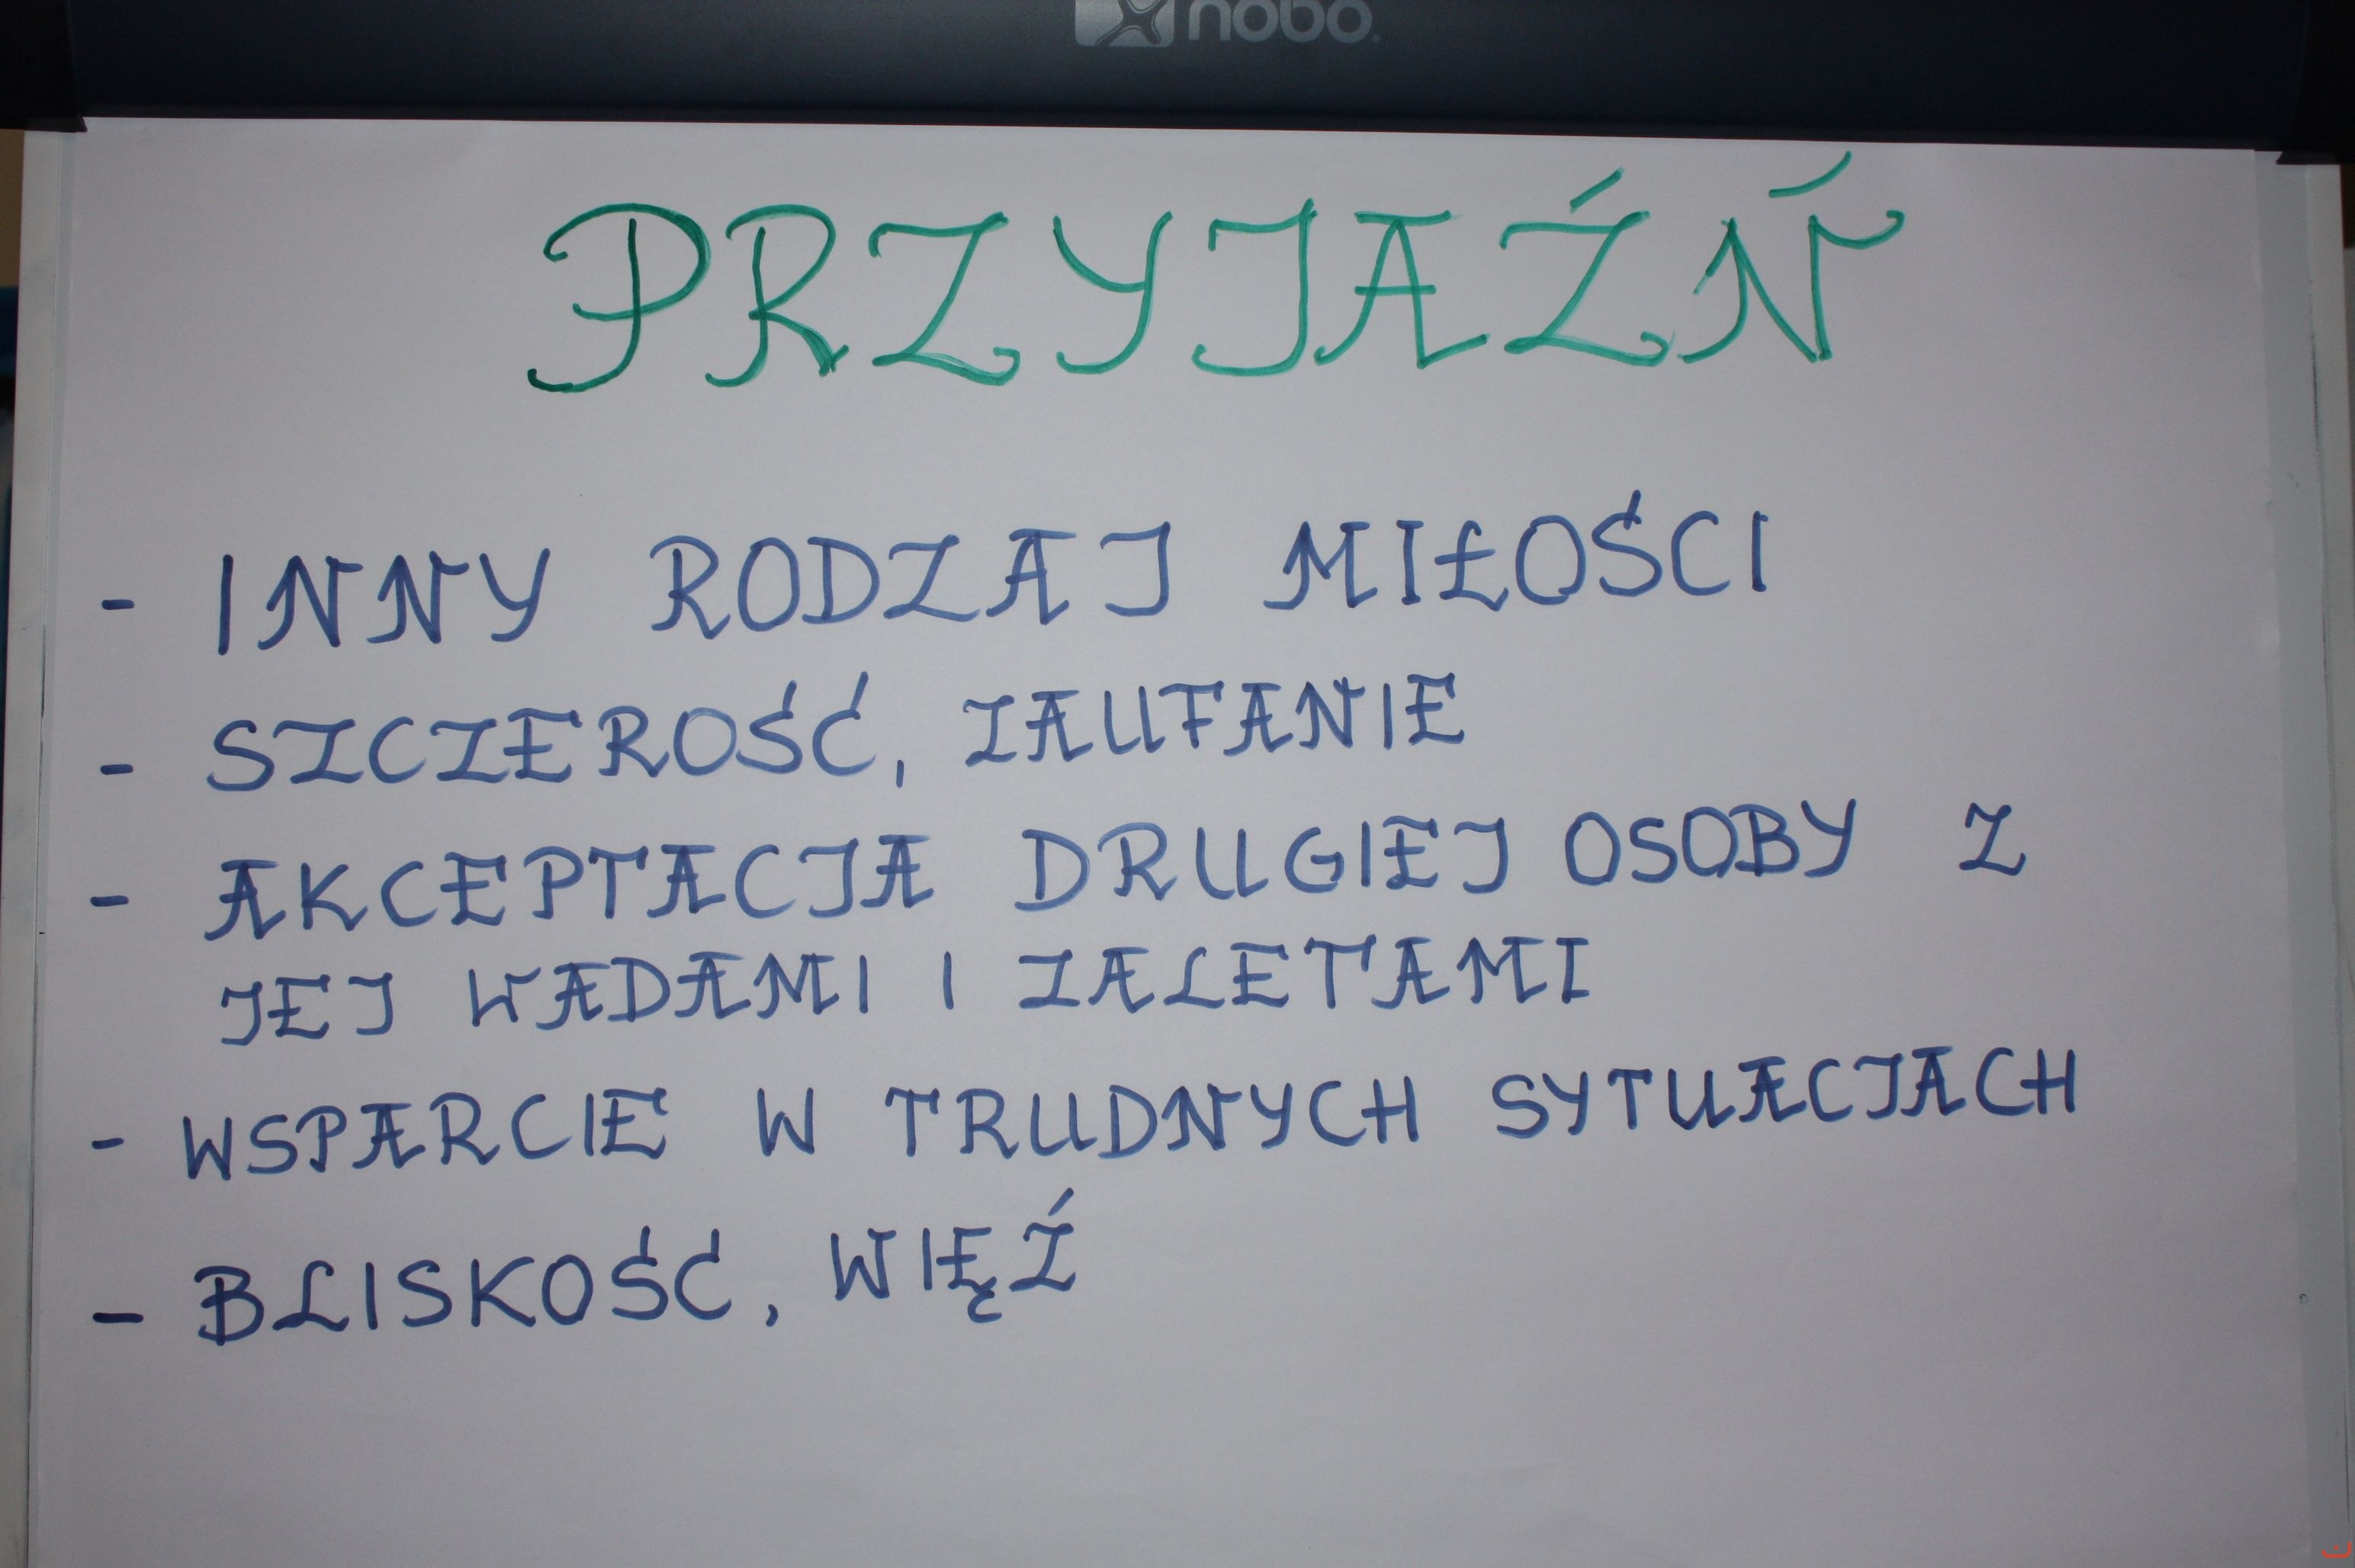 nobo
PRZYJAŹŃ
- INNY RODZAJ MIŁOŚCI
- SZCZEROŚĆ, ZAUFANIE
- AKCEPTACJA DRUGIEJ OSOBY Z
JEJ WADAMI I ZALETAMI
- WSPARCIE W TRUDNYCH SYTUACJACH
- BLISKOŚĆ, WIĘŹ